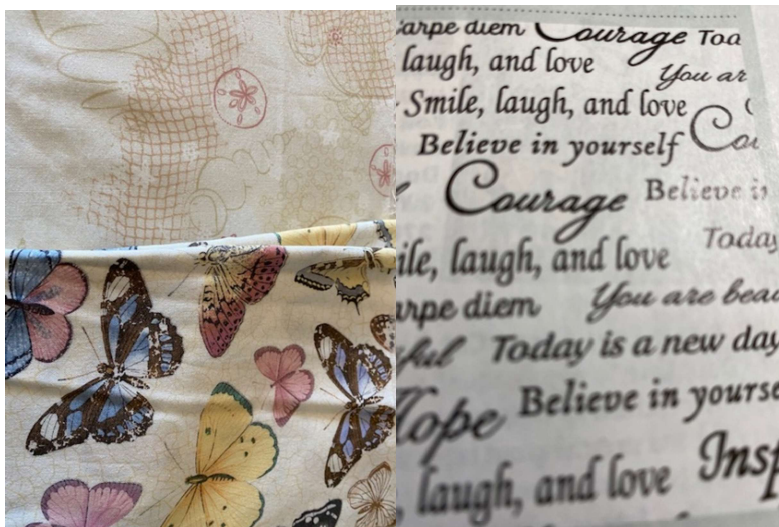 Carpe diem Courage Toda
laugh, and love
You ar
Smile, laugh, and love
Believe in yourself
Courage Believe i
ile, laugh, and love Today
arpe diem You are beau
ful Today is a new day
Hope Believe in yourse
laugh, and love Insp